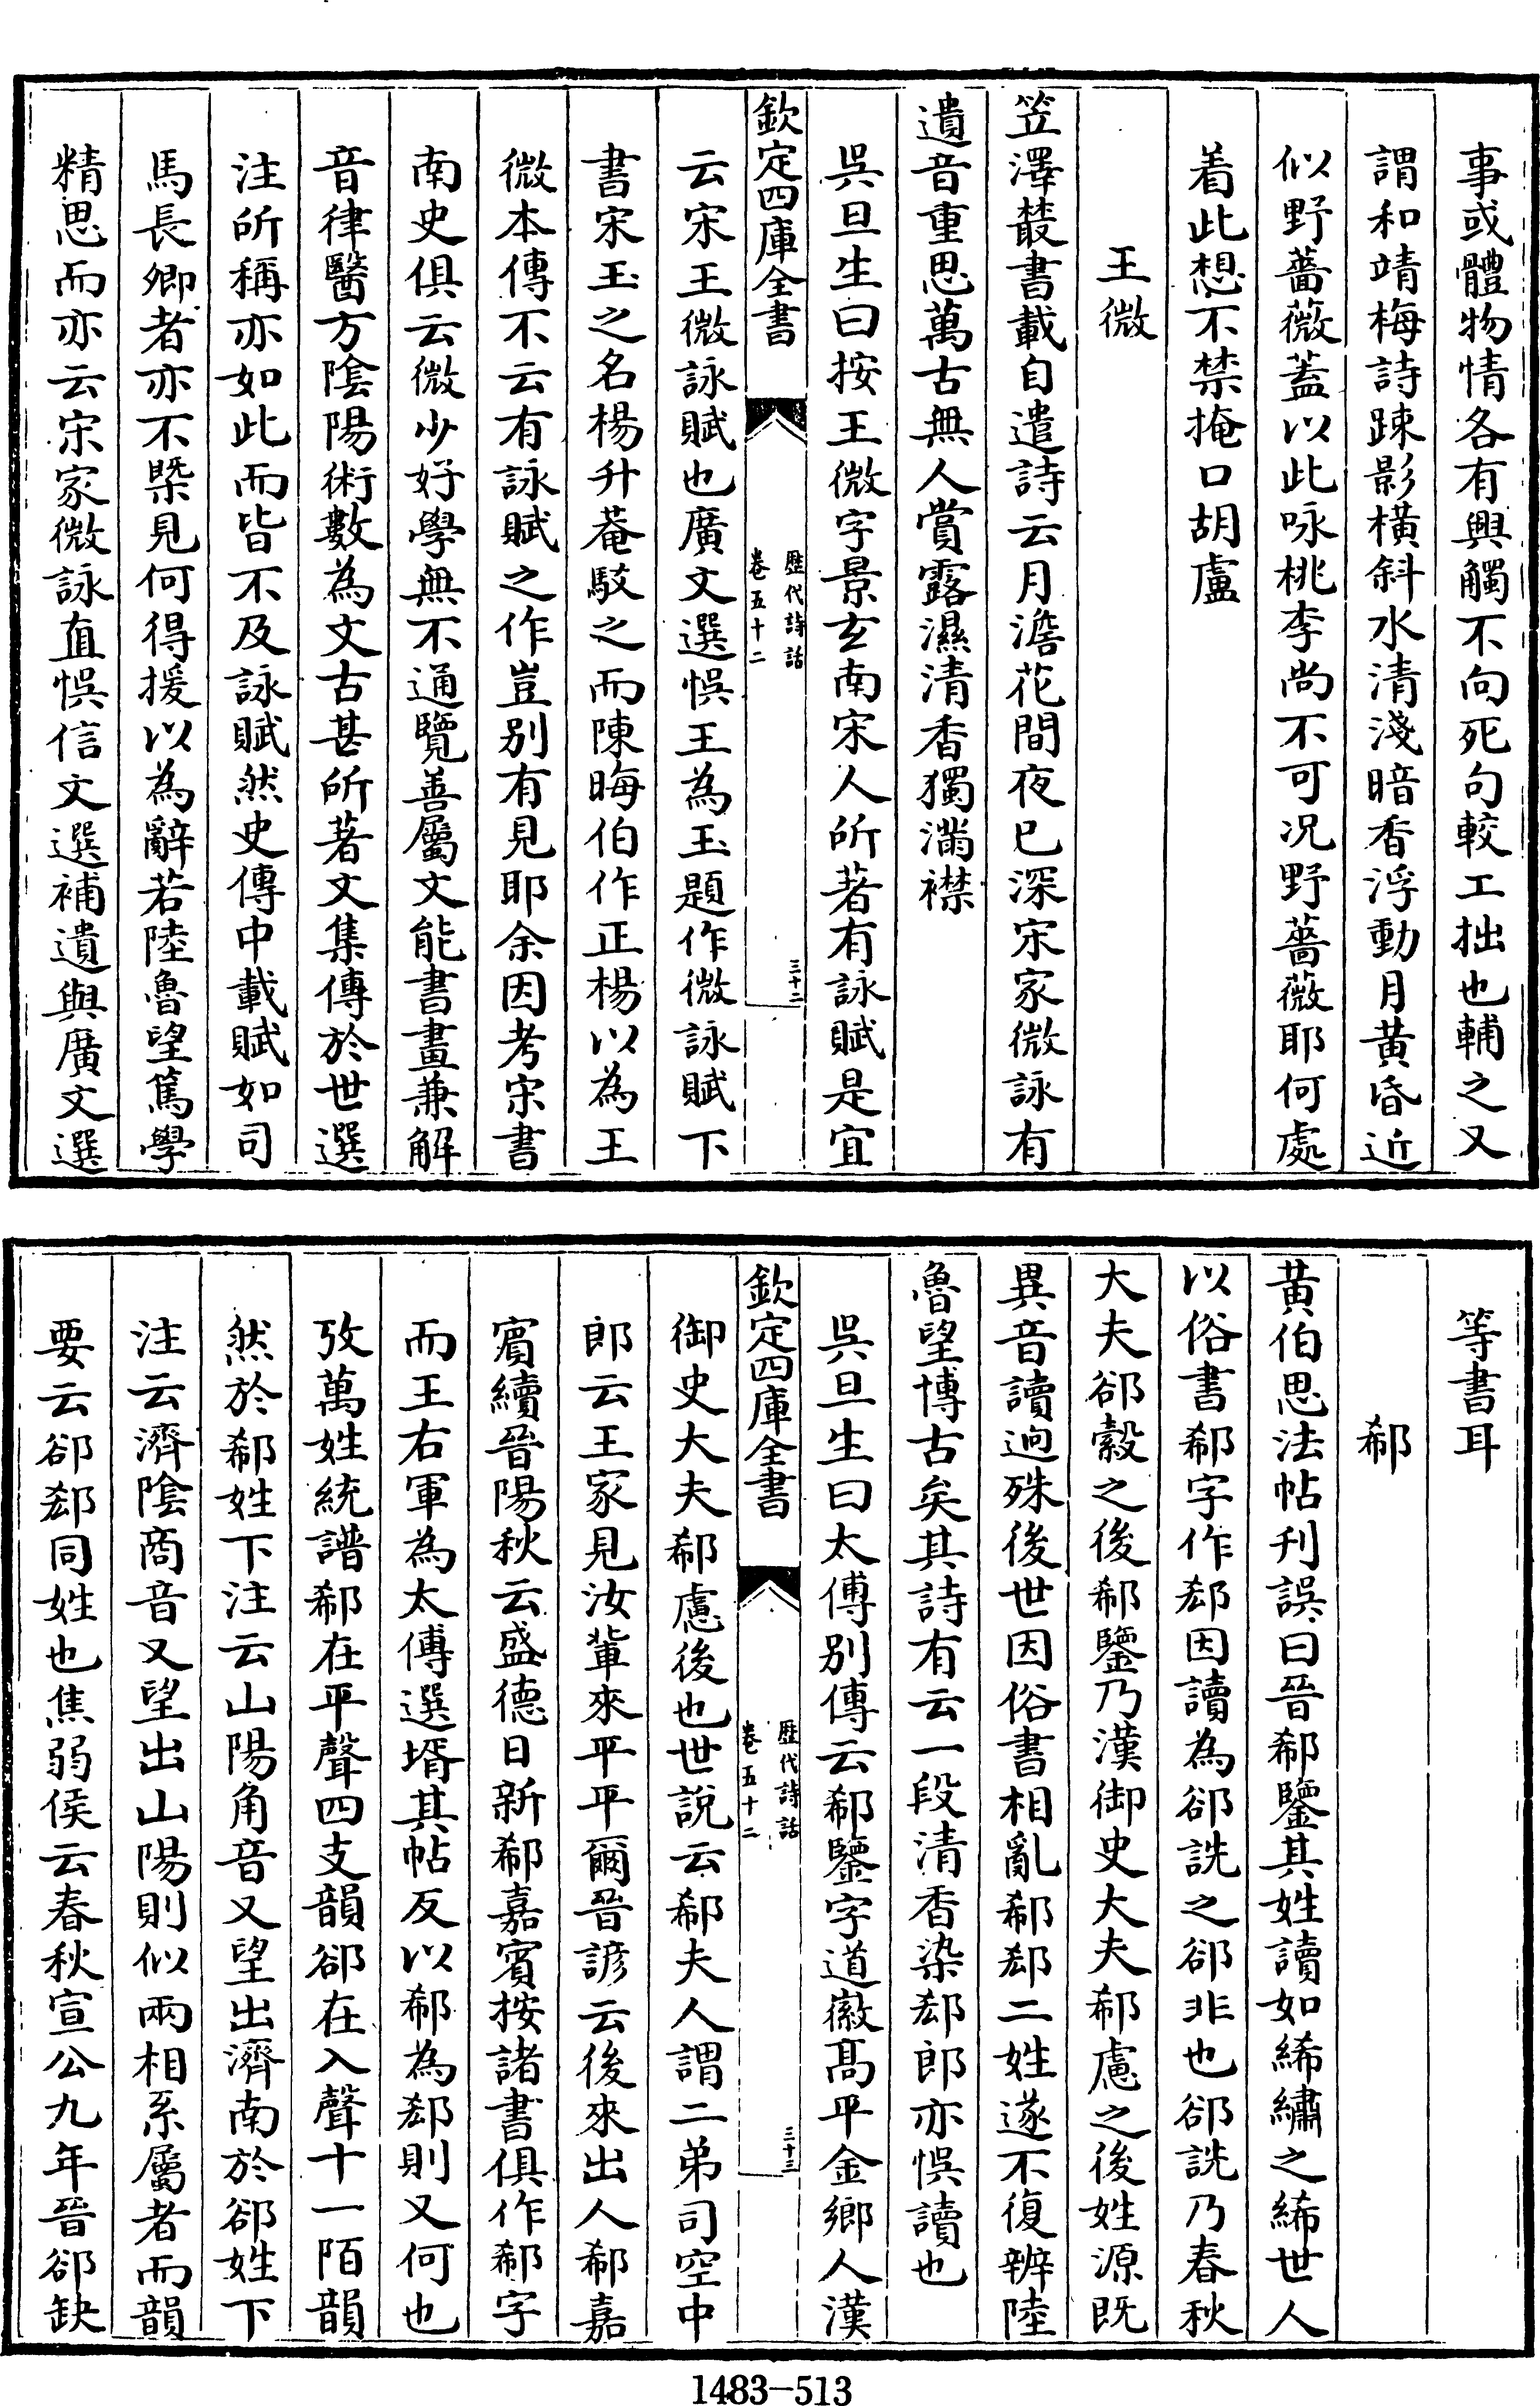 事或體物情各有興觸不向死句較工拙也輔之又
謂和靖梅詩踈影橫斜水清淺暗香浮動月黃昏近
似野薔薇蓋以此咏桃李尚不可况野薔薇耶何處
着此想不禁掩口胡盧
王微
笠澤叢書載自遣詩云月澹花間夜已深宋家微詠有
遺音重思萬古無人賞露濕清香獨滿襟
吳旦生曰按王微字景玄南宋人所著有詠賦是宜
欽定四庫全書
歷代詩話
卷五十二
三十二
云宋王微詠賦也廣文選悞王為玉題作微詠賦下
書宋玉之名楊升菴駁之而陳晦伯作正楊以為王
微本傳不云有詠賦之作豈别有見耶余因考宋書
南史俱云微少好學無不通覽善屬文能書畫兼解
音律醫方隂陽術數為文古甚所著文集傳於世選
注所稱亦如此而皆不及詠賦然史傳中載賦如司
馬長卿者亦不槩見何得援以為辭若陸魯望篤學
精思而亦云宋家微詠直悞信文選補遺與廣文選
等書耳
郗
黃伯思法帖刋誤曰晉郗鑒其姓讀如絺繡之絺世人
以俗書郗字作郄因讀為郤詵之郤非也郤詵乃春秋
大夫郤縠之後郗鑒乃漢御史大夫郗慮之後姓源既
異音讀逈殊後世因俗書相亂郗郄二姓遂不復辨陸
魯望博古矣其詩有云一段清香染郄郎亦悞讀也
吳旦生曰太傅别傳云郗鑒字道徽髙平金鄉人漢
欽定四庫全書
歷代詩話
卷五十二
三十三
御史大夫郗慮後也世說云郗夫人謂二弟司空中
郎云王家見汝輩來平平爾晉諺云後來出人郗嘉
賓續晉陽秋云盛德日新郗嘉賓按諸書俱作郗字
而王右軍為太傅選壻其帖反以郗為郄則又何也
攷萬姓統譜郗在平聲四支韻郤在入聲十一陌韻
然於郗姓下注云山陽角音又望出濟南於郤姓下
注云濟隂商音又望出山陽則似兩相系屬者而韻
要云郤郄同姓也焦弱侯云春秋宣公九年晉郤缺
1483-513